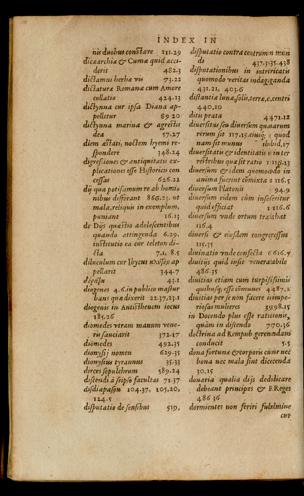 INDEX IN
nis duobus constare 111.29
dicæarchia & Cuma quid acci-
derit 482.3
dictamus herba vis 73.22
dictatura Romana cum Amore
collatis 424.13
dictynna cur ipsa Diana ap-
pelletur 89 20
dictynna marina & agrestis
dea 57.27
diem ætati, noctem hyemi re-
spondere 348.24
digressiones & antiquitatu ex-
plicationes esse Historicis con
cessus 626.22
dij qua potissimum re ab homi-
nibus differant 860.29. ut
mala, reliquis in exemplum,
puniant 16.13
de Dijs quæstio adolescentibus
quando attingenda 6.29.
institutio ea cur teleton di-
cta 7.1, 8.5
diluculum cur lycum ap-
pellarit 344.7
43.1
diogenes 4.6. in publico mastur
bans quæ dixerit 22.37, 23.1
diogenis in Antisthenem iocus
185.26
diomedes etiam manum vene-
ris sauciavit 372.17
diomedes 492.35
dionysij nomen 629.15
dionysius tyrannus 35.33
dirces sepulchrum 589.24
distendi à seipso facultas 71.37
disdiapason 104.37, 105.20,
124.5
disputatio de sensibus 519,
disputatio contra centrum mun
di 437.31.35.438
disputationibus in intricatis
quomodo veritas indaganda
431.21, 403.6
distantia lunæ, solis, terræ, & centri
440.10
diti prata 4471.12
diuersitas seu diuersum quatuor
rerum sit 117.15. eiusq; quod
nam sit munus ibibid.17
diuersitatis & identitatis uis in ter
restribus quæ sit ratio 1 119.23
diuersum & idem quomodo in
anima fuerint coniuncta 2 116.5
diuersum Platonis 94.9
diuersum eidem cum inseseritur
quid efficiat 2 116.6
diuersum unde ortum traxerit
116.4
diuersi & eiusdem congressus
115.35
diuinatio unde consecta 6 616.7
diuitijs quid insit venerabile
486.35
diuitias etiam cum turpissimis
quibusq; esse communes 4487.2
diuitias per se non facere isimpe-
riosas mulieres 3998.15
in Docendo plus esse rationis,
quàm in discendo 770.36
doctrina ad Rempub. gerendam
conducit 5.5
dona fortunæ & corporis cur nec
bona nec mala sint dicenda
30.15
donaria qualia dijs dedicare
debeant principes & F. Reges
486 36
dormientes non feriri fulmine
cur